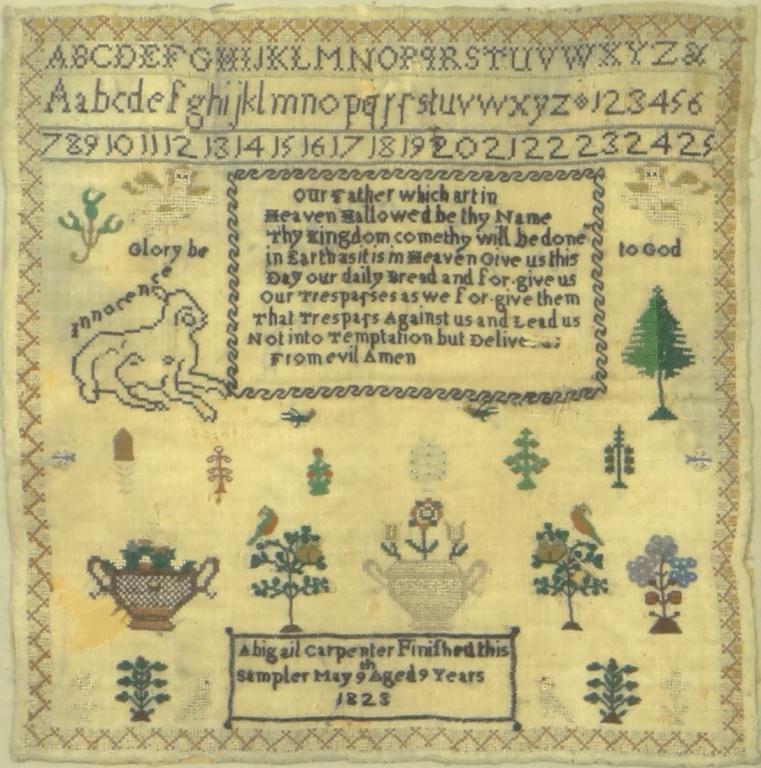 ABCDEFGHIJKLMNOPQRSTUVWXYZ&
Aabcdefghijklmnopqrſstuvwxyz 123456
7 8 9 10 11 12 13 14 15 16 17 18 19 20 21 22 23 24 25
Our Father which art in
Heaven Hallowed be thy Name
Thy Kingdom come thy will be done
in Earth as it is in Heaven Give us this
Day our daily Bread and for-give us
Our Trespaſses as we for-give them
That Trespaſs Against us and Lead us
Not into Temptation but Deliver us
From evil Amen
Glory be
to God
Innocence
Abigail Carpenter Finiſhed this
Sampler May 9th Aged 9 Years
1828